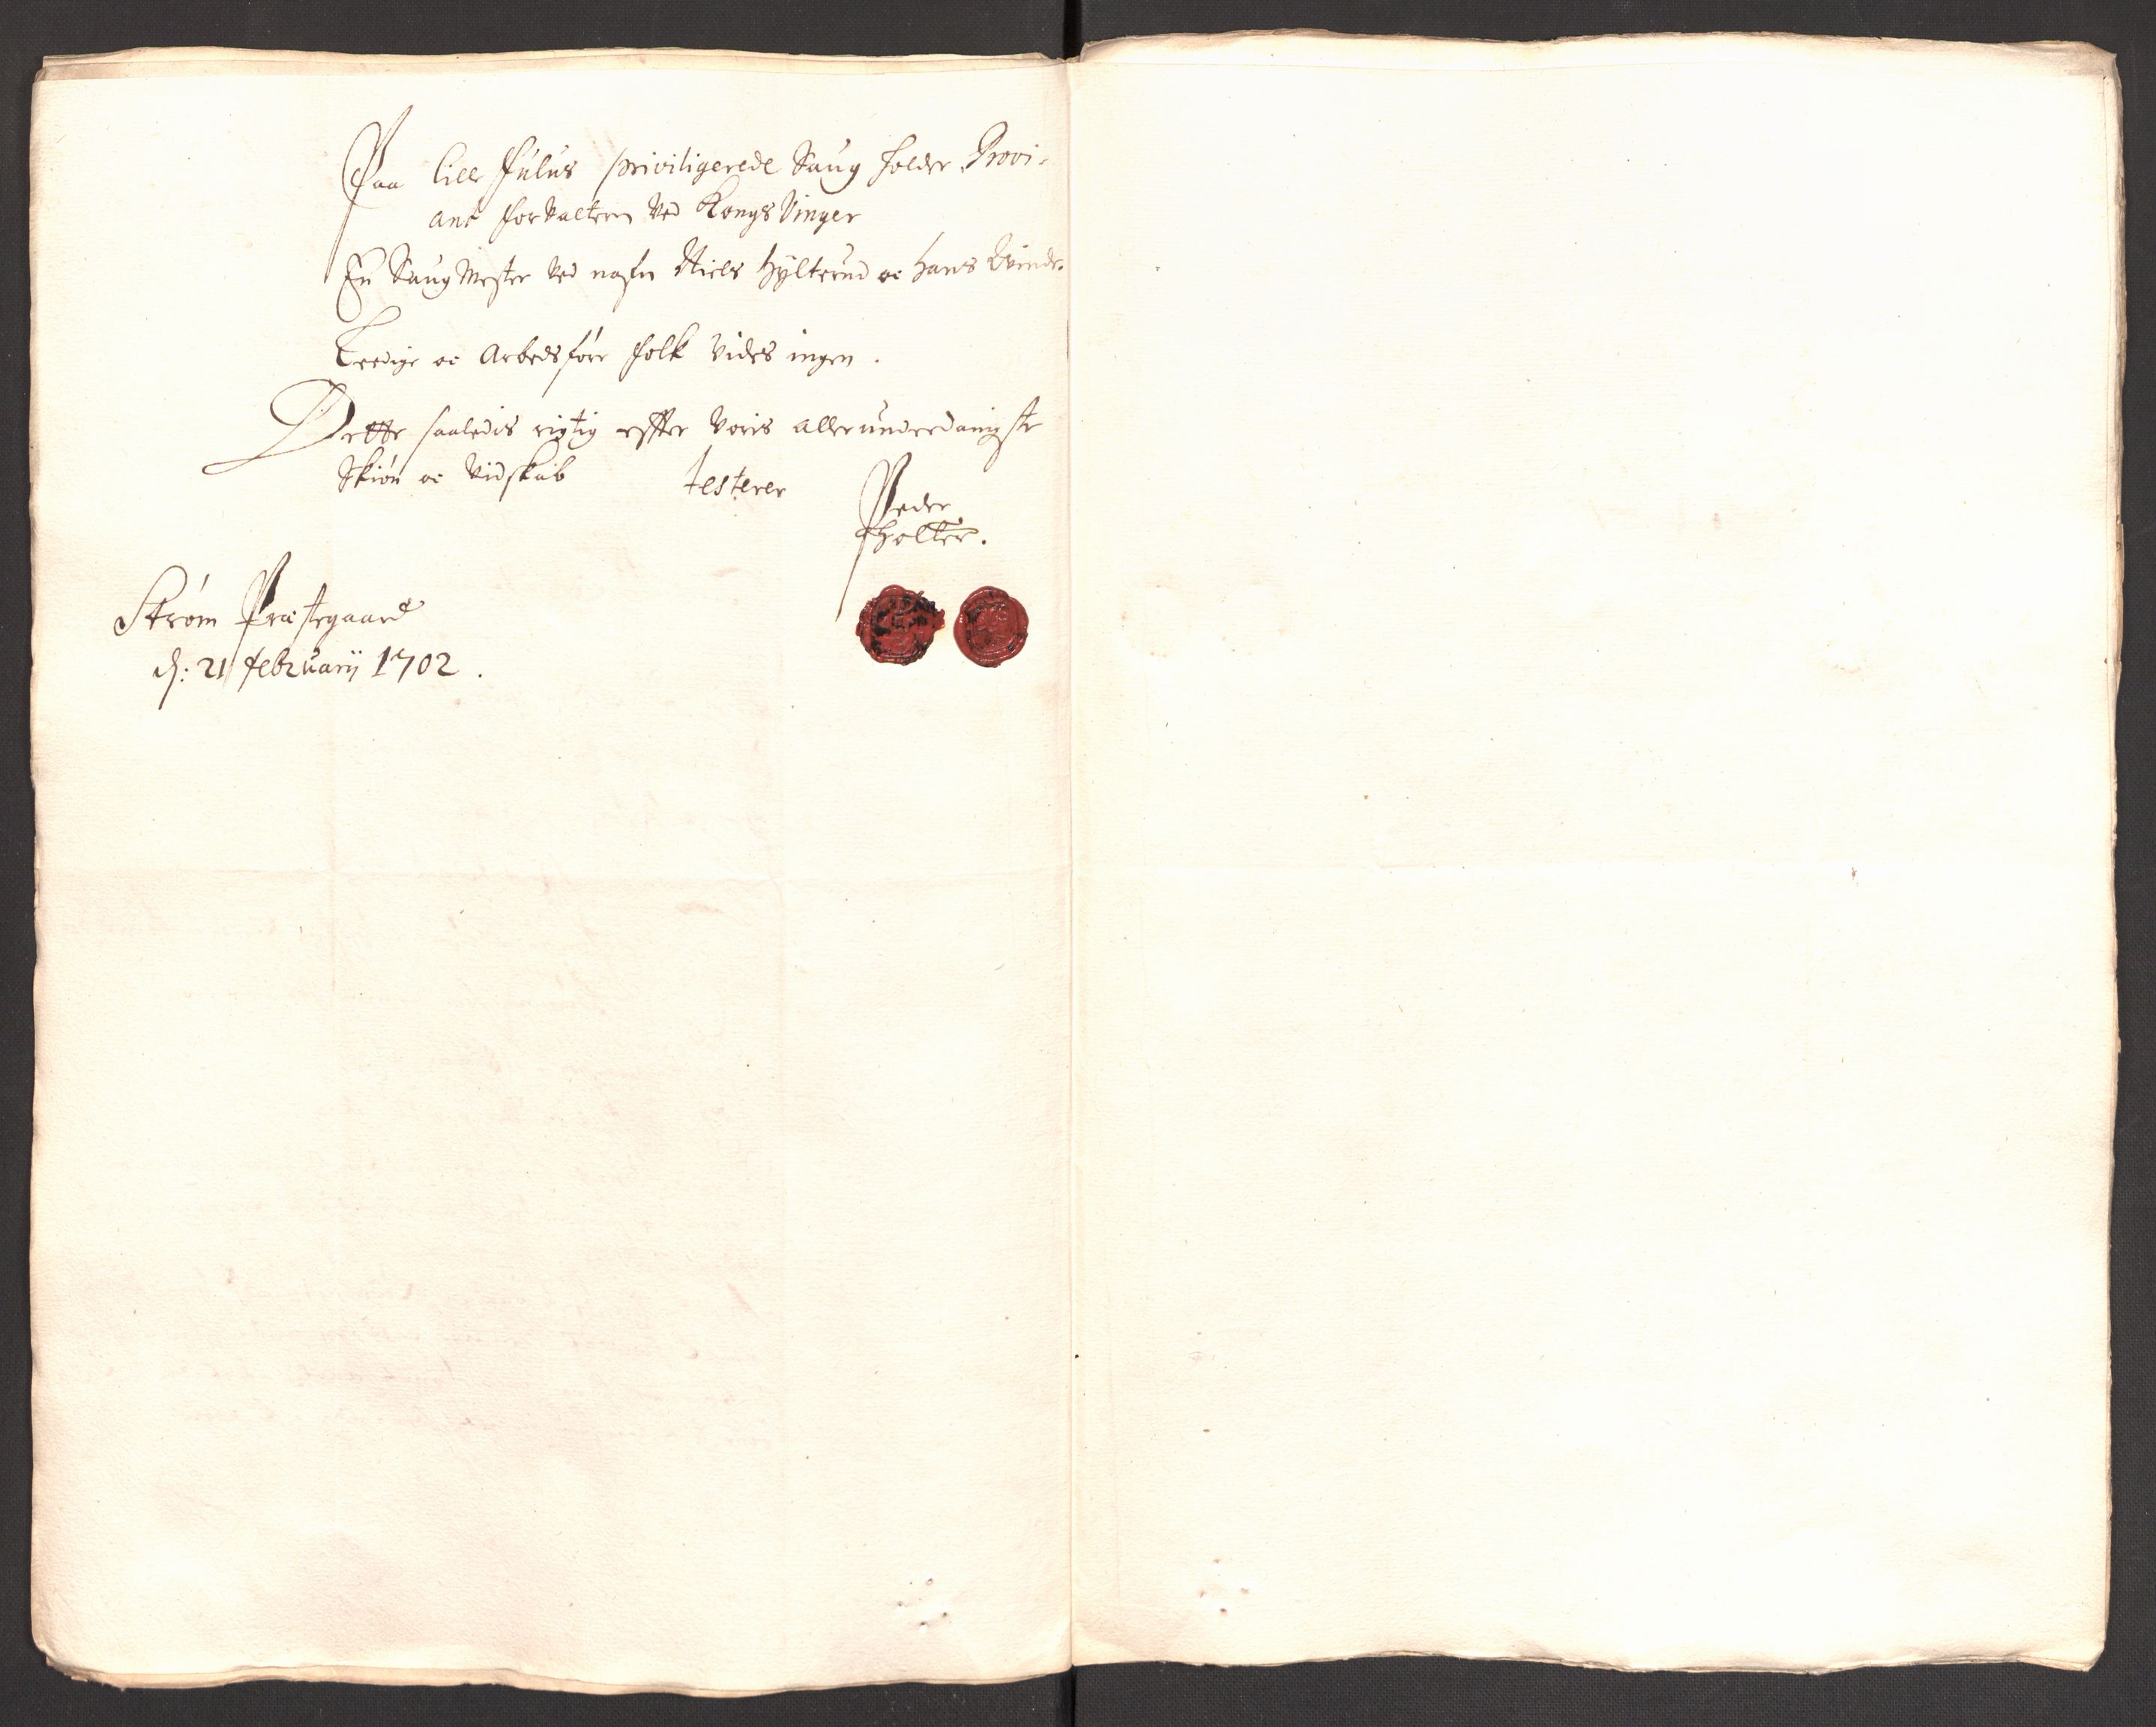 Paa lille fulus priviligerede Saug holder Provi-
ant forvalteren ved Kongs Vinger
En Saug Mester ved nafn Niels Hylterud oc hans Qvinde.
Leedige oc Arbeds føre folk vides ingen.
Dette saaledis rigtig effter voris allerunderdanigste
Skiøn oc vidskab testerer
Peder
Holter.
Strøm Præstegaard
d: 21 februarij 1702.